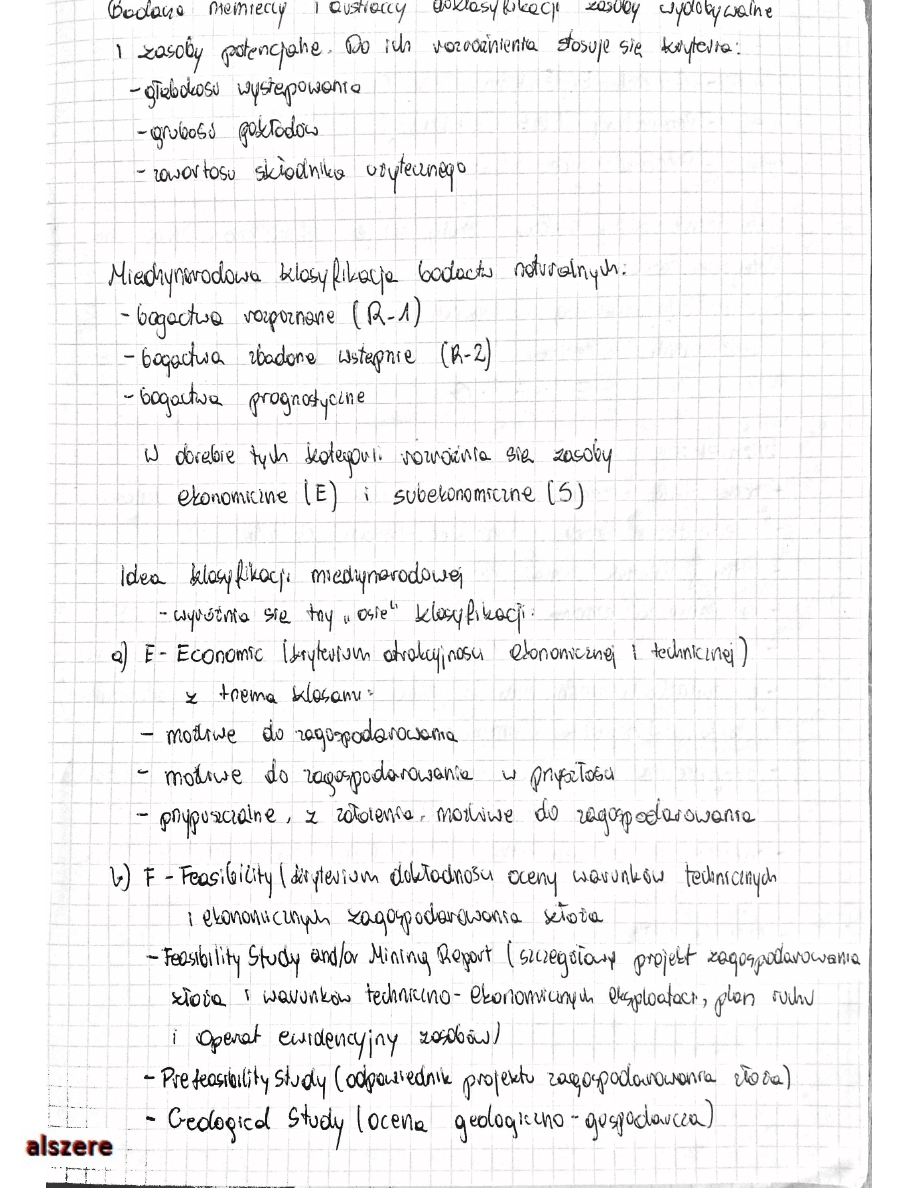 Badacze niemieccy i austriaccy zasoby wydobywalne
i zasoby potencjalne. Do ich rozróżnienia stosuje się kryteria:
- głębokość występowania
- grubość pokładów
- zawartość składnika użytecznego
Międzynarodowa klasyfikacja bogactw naturalnych:
- bogactwa rozpoznane (R-1)
- bogactwa zbadane wstępnie (R-2)
- bogactwa prognostyczne
W obrębie tych kategorii rozróżnia się zasoby
ekonomiczne (E) i subekonomiczne (S)
Idea klasyfikacji międzynarodowej
- wyróżnia się trzy "osie" klasyfikacji:
a) E - Economic (kryterium atrakcyjności ekonomicznej i technicznej)
z trzema klasami:
- możliwe do zagospodarowania
- możliwe do zagospodarowania w przyszłości
- przypuszczalne, z założenia, możliwe do zagospodarowania
b) F - Feasibility (kryterium dokładności oceny warunków technicznych
i ekonomicznych zagospodarowania złoża
- Feasibility Study and/or Mining Report (szczegółowy projekt zagospodarowania
złoża i warunków techniczno-ekonomicznych eksploatacji, plan ruchu
i Operat ewidencyjny zasobów)
- Prefeasibility Study (odpowiednik projektu zagospodarowania złoża)
- Geological Study (ocena geologiczno-gospodarcza)
alszere